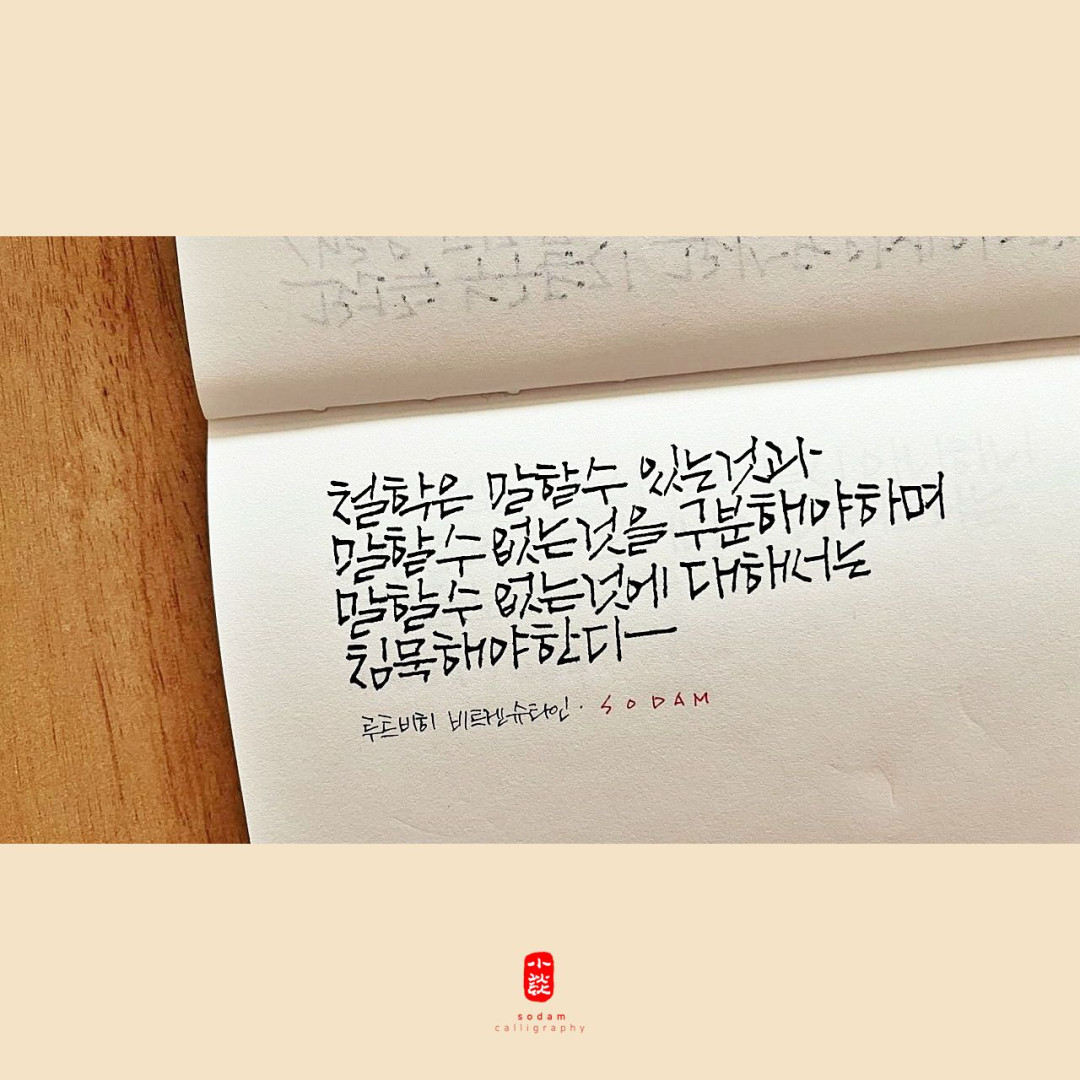 철학은 말할수 있는것과
말할수 없는것을 구분해야하며
말할수 없는것에 대해서는
침묵해야한다
루트비히 비트겐슈타인 · SODAM
小談
sodam
calligraphy